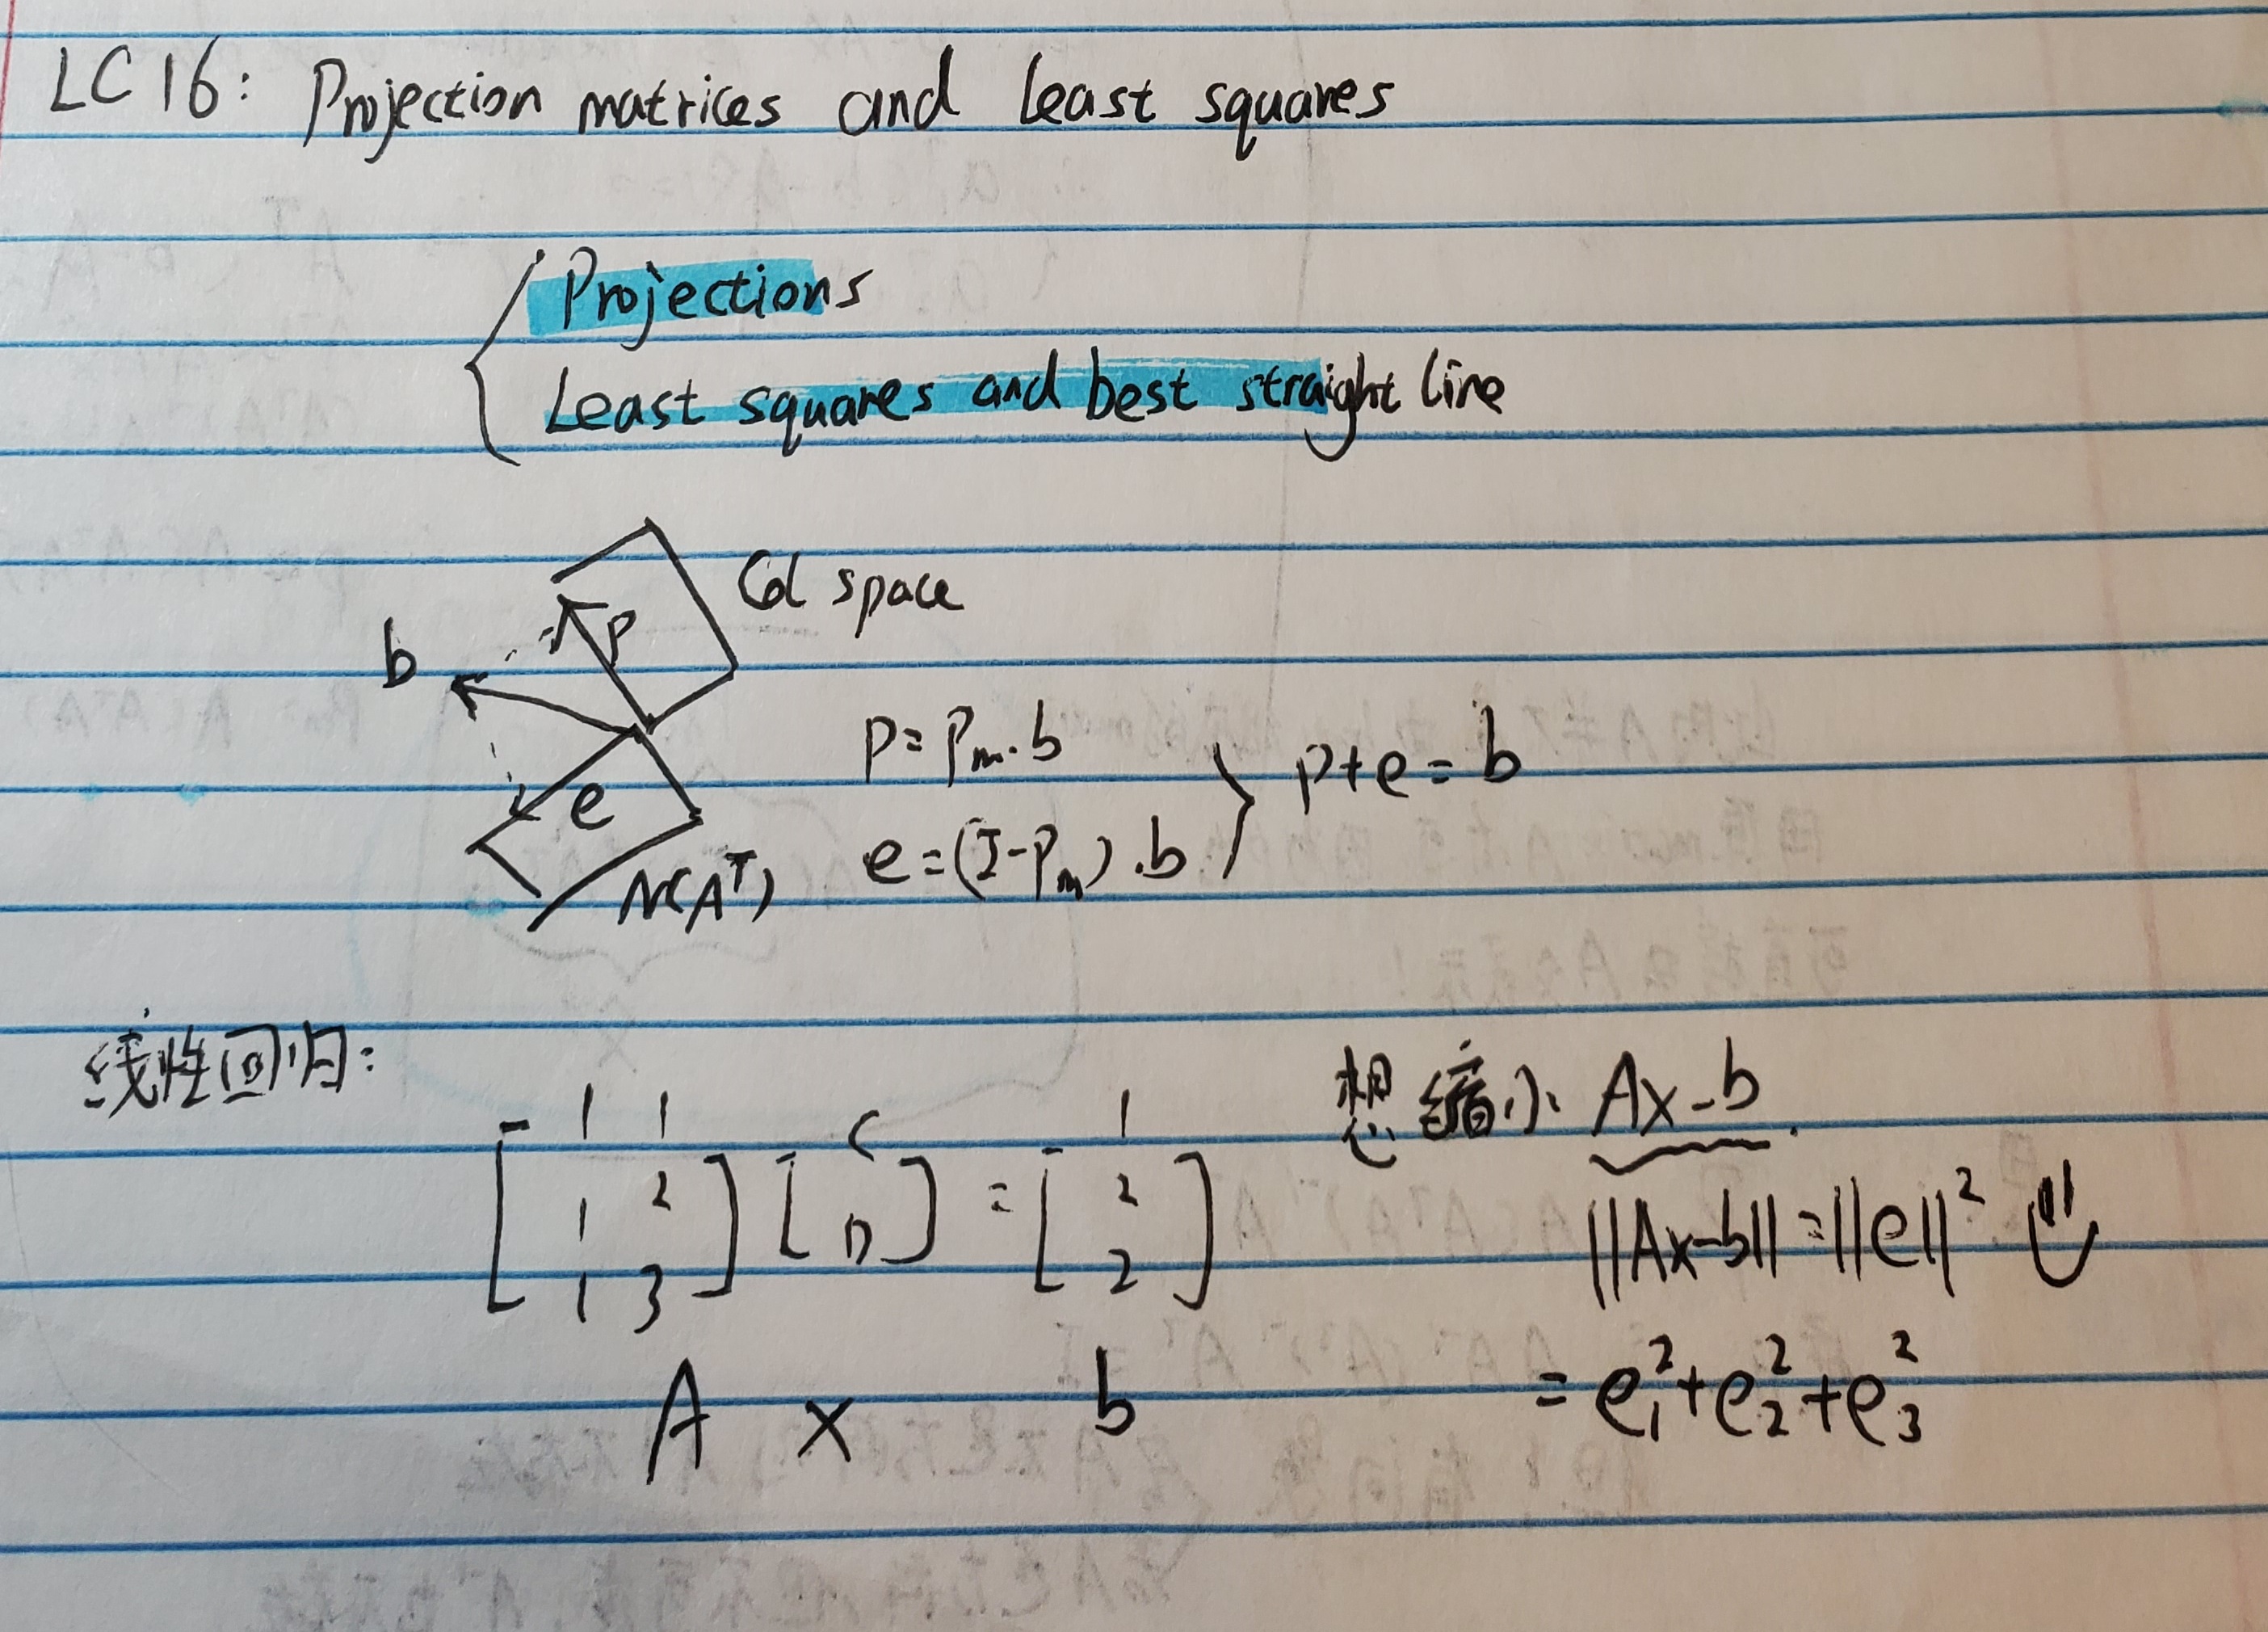 LC 16: Projection matrices and least squares
Projections
Least squares and best straight line
Col space
b
p
e
N(Aᵀ)
p = Pₘ·b
e = (I-Pₘ)·b
p+e = b
线性回归:
[1 1
1 2
1 3] [C
D] = [1
2
2]
A x b
想缩小 Ax-b.
||Ax-b|| = ||e||²
= e₁²+e₂²+e₃²